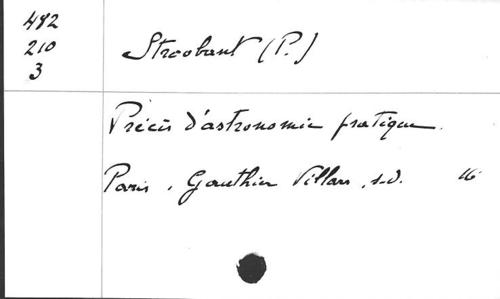 482
210
3
Stroobant (P.)
Précis d'astronomie pratique.
Paris, Gauthier Villars, s.d. 16